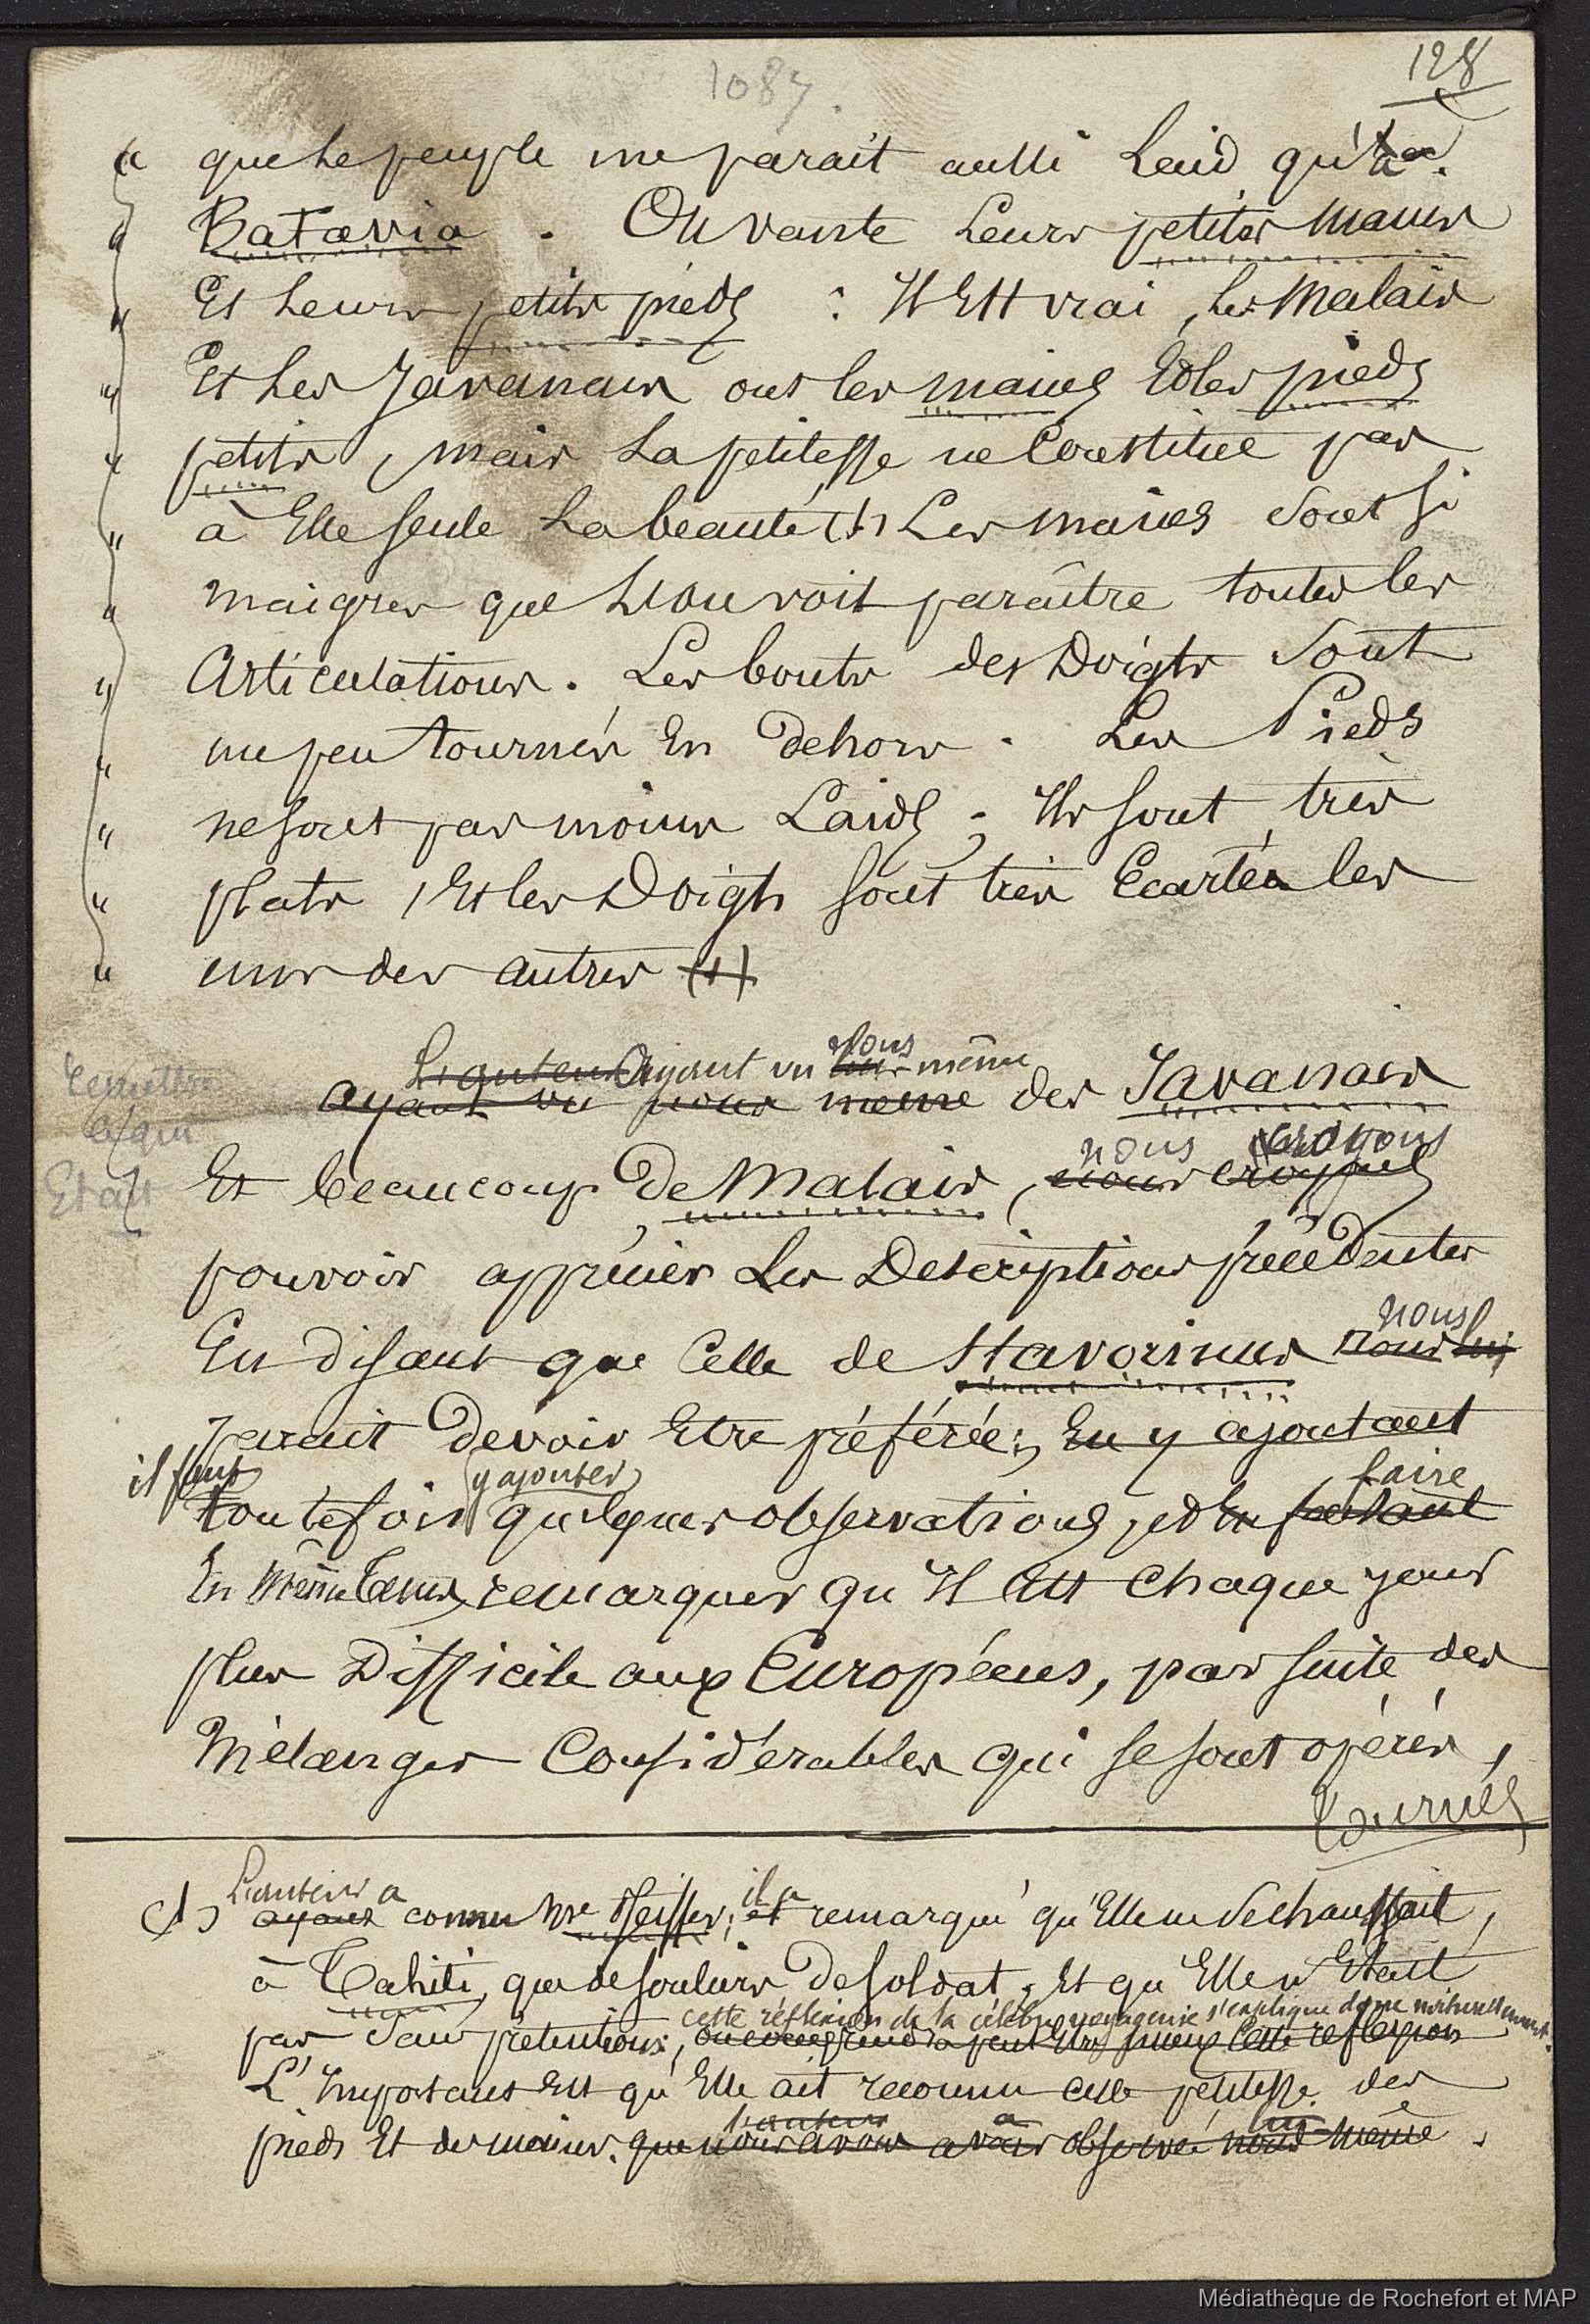 1087.
128
" que le peuple me parait aussi Laid qu'à
" Batavia. On vante Leurs petites mains
" Et Leurs petits pieds : Il Est vrai, les Malais
" Et Les Javanais ont les mains Et les pieds
" petits, mais La petitesse ne Constitue pas
" à Elle seule La beauté (1) Les mains sont si
" maigres que L'on voit paraître toutes les
" Articulations. Les bouts des Doigts sont
" un peu tournés En Dehors. Les Pieds
" ne sont pas moins Laids ; Ils sont très
" plats, Et les Doigts sont très Ecartés les
" uns des autres (1)
L'auteur Ayant vu nous même
ayant vu nous meme des Javanais
remettre
Etat
nous croyons
Et beaucoup de Malais, nous croyons
pouvoir apprécier Les Descriptions précédentes
nous
En disant que Celle de Stavorinus nous lui
parait Devoir Etre préférée ; En y ajoutant
il faut y ajouter faire
toutefois quelques observations, et En faisant
En même tems remarquer qu'Il Est Chaque jour
plus Difficile aux Européens, par suite des
Mélanges Considérables qui se sont opérés,
Tournez
L'auteur a il a
(1) ayant connu Mme Pfeiffer, et remarqué qu'Elle ne se chaussait,
à Tahiti, que de souliers de soldat, Et qu'Elle n'Etait
cette réflexion de la célèbre voyageuse s'explique donc naturellement.
pas sans prétentions, on comprendra peut Etre mieux Cette reflexion
L'Important Est qu'Elle ait reconnu cette petitesse des
l'auteur a lui
pieds Et des mains. que nous avons avons observée nous même.
Médiathèque de Rochefort et MAP